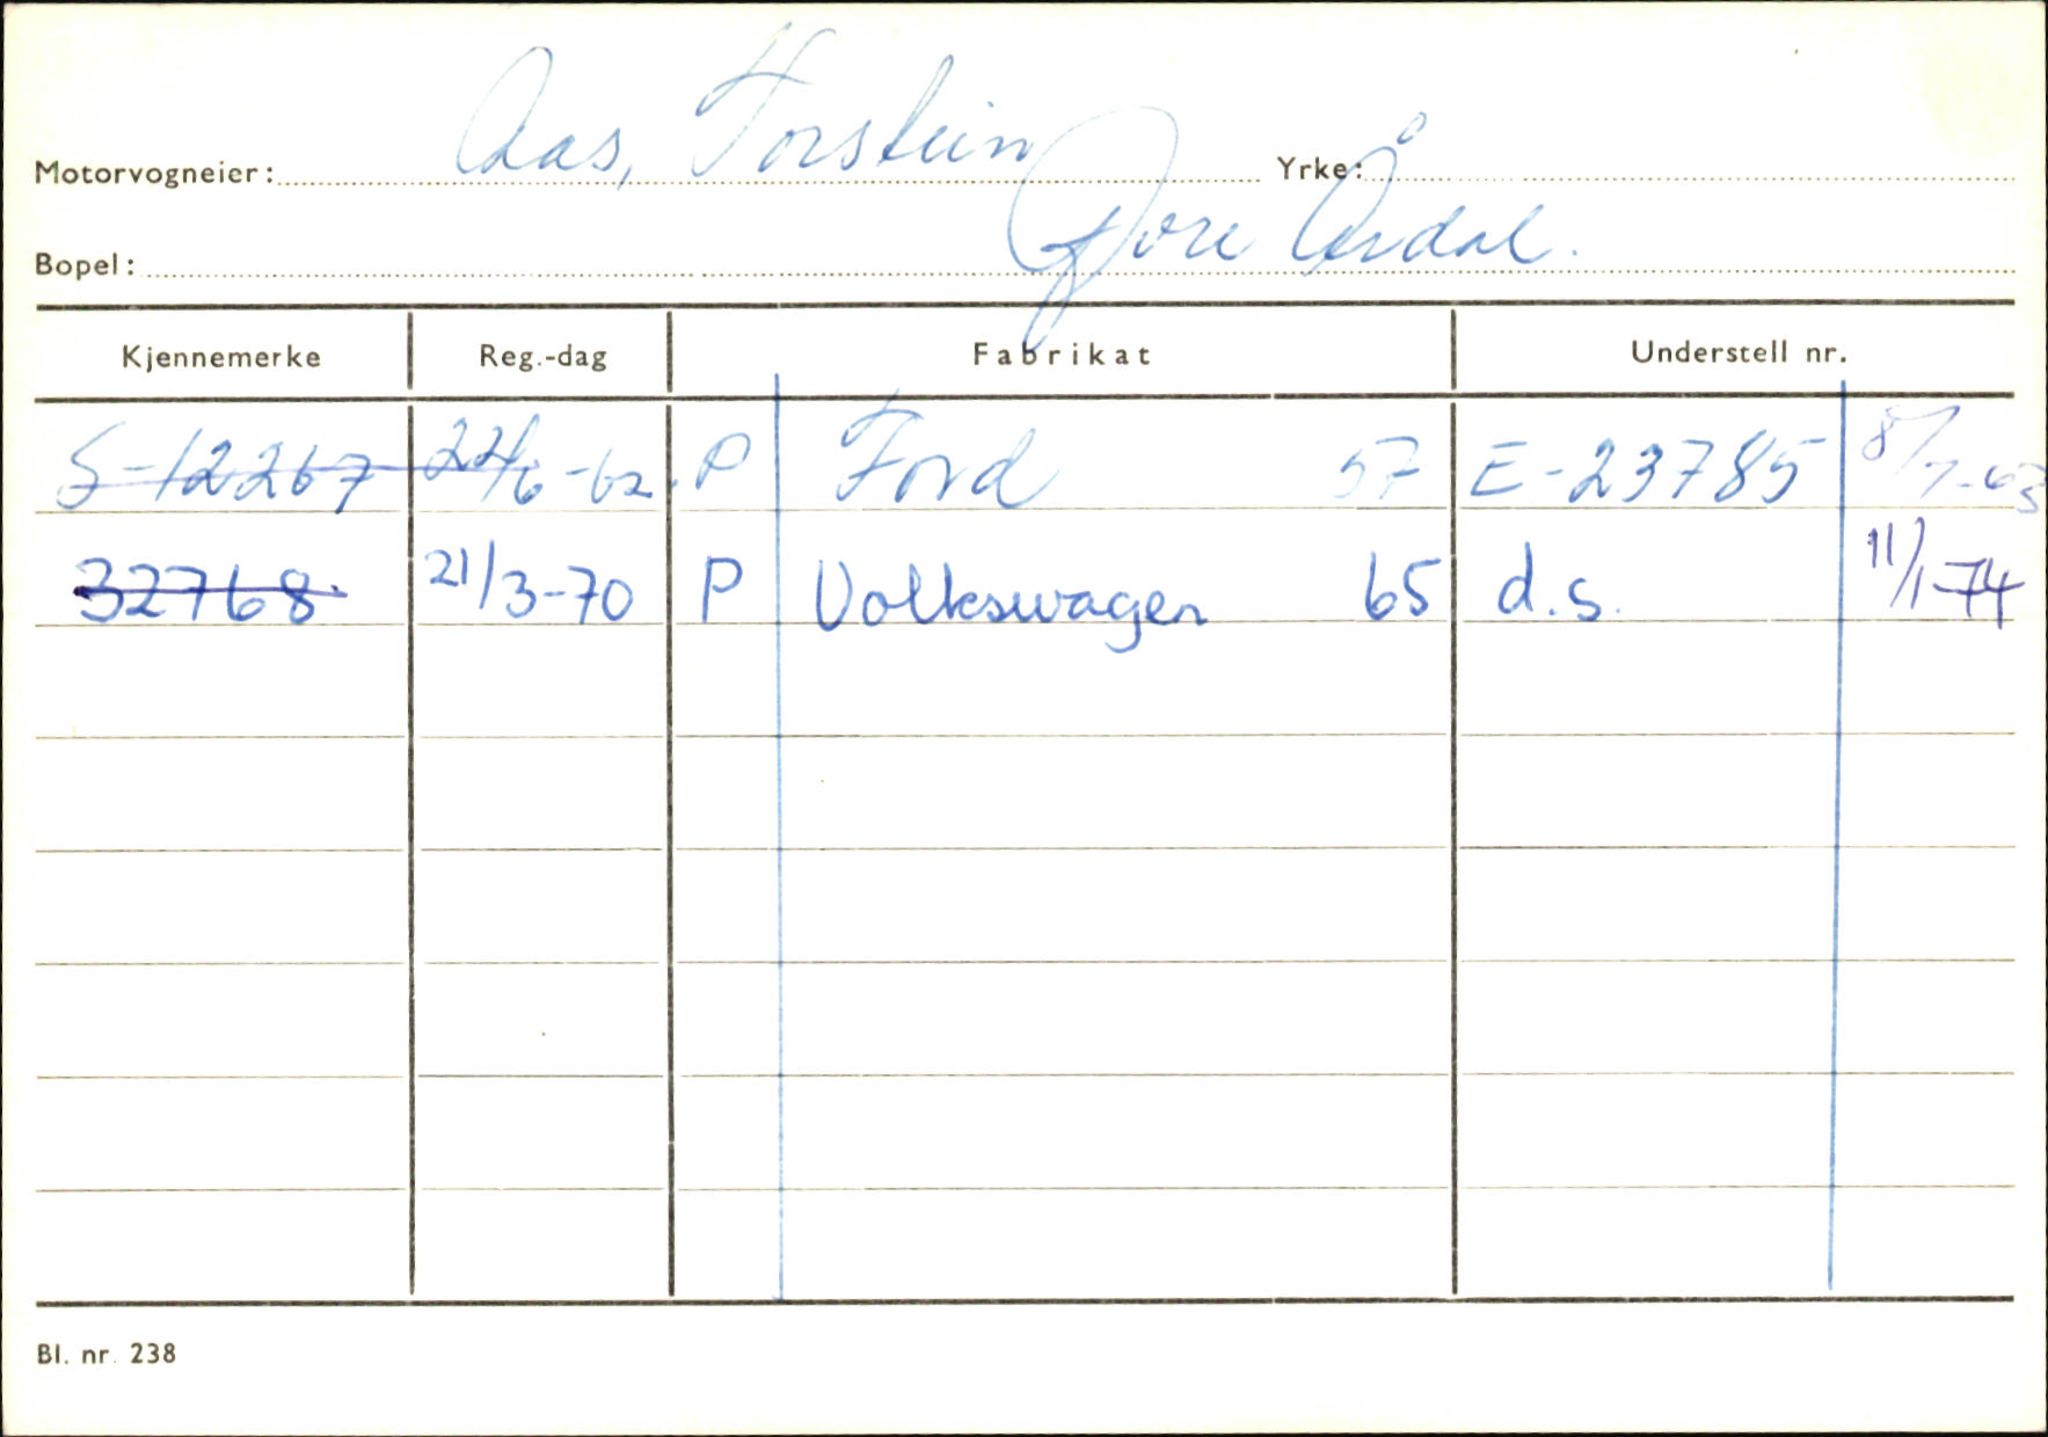 Motorvogneier: Aas, Torstein Yrke:
Bopel: Øvre Årdal.
Kjennemerke Reg.-dag Fabrikat Understell nr.
S-12267 22/6-62. P Ford 57 E-23785 8/7-63
32768 21/3-70 P Volkswagen 65 d.s. 11/1-74
Bl. nr. 238